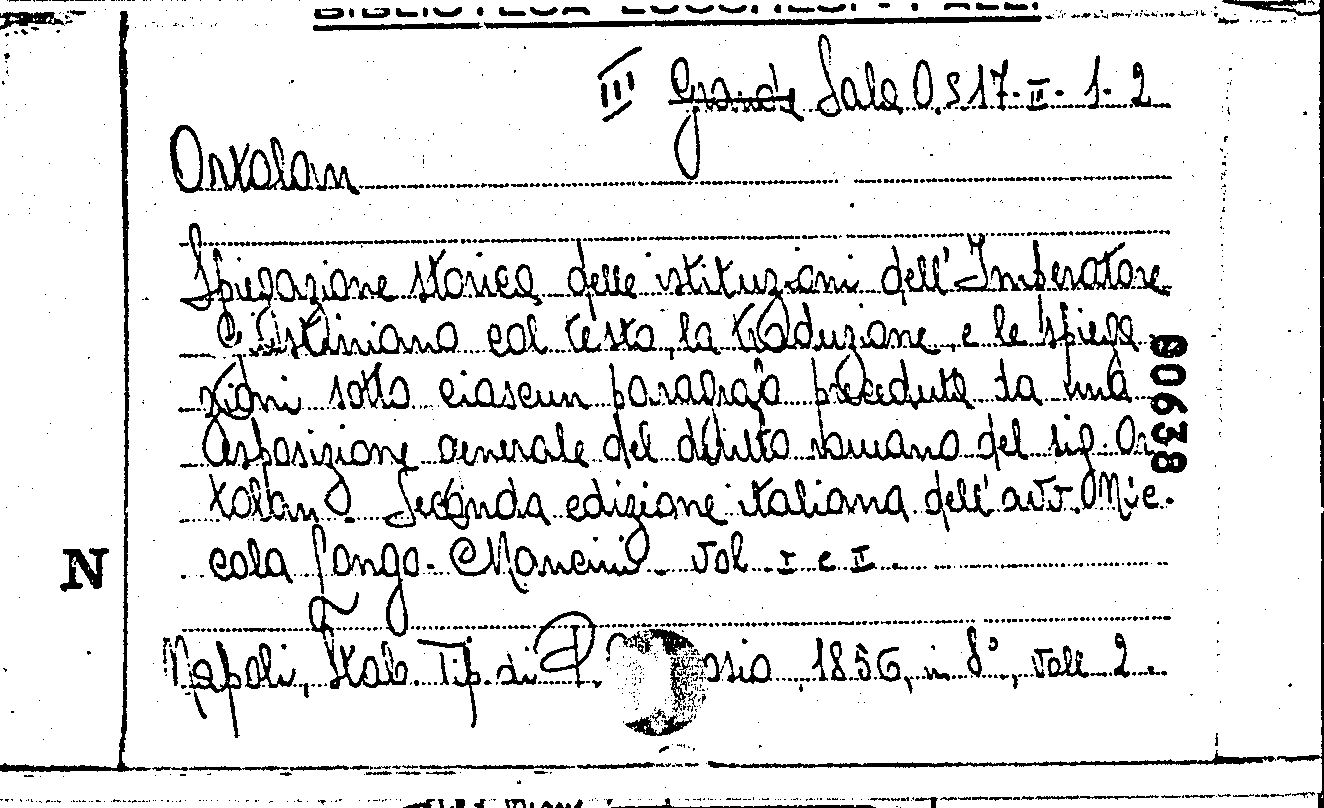 BIBLIOTECA LUCCHESI - PALLI
III Grande Sala O.S 17-II-1-2
Ortolan
Spiegazione storica delle istituzioni dell'Imperatore
Giustiniano col testo, la traduzione, e le spiega
zioni sotto ciascun paragrafo precedute da una
esposizione generale del diritto romano del sig. Or
tolan. Seconda edizione italiana dell'avv. Nic-
cola Mancini - Vol. I e II.
00638
N
Napoli, Stab. Tip. di P. 1856, in 8°, voll 2.